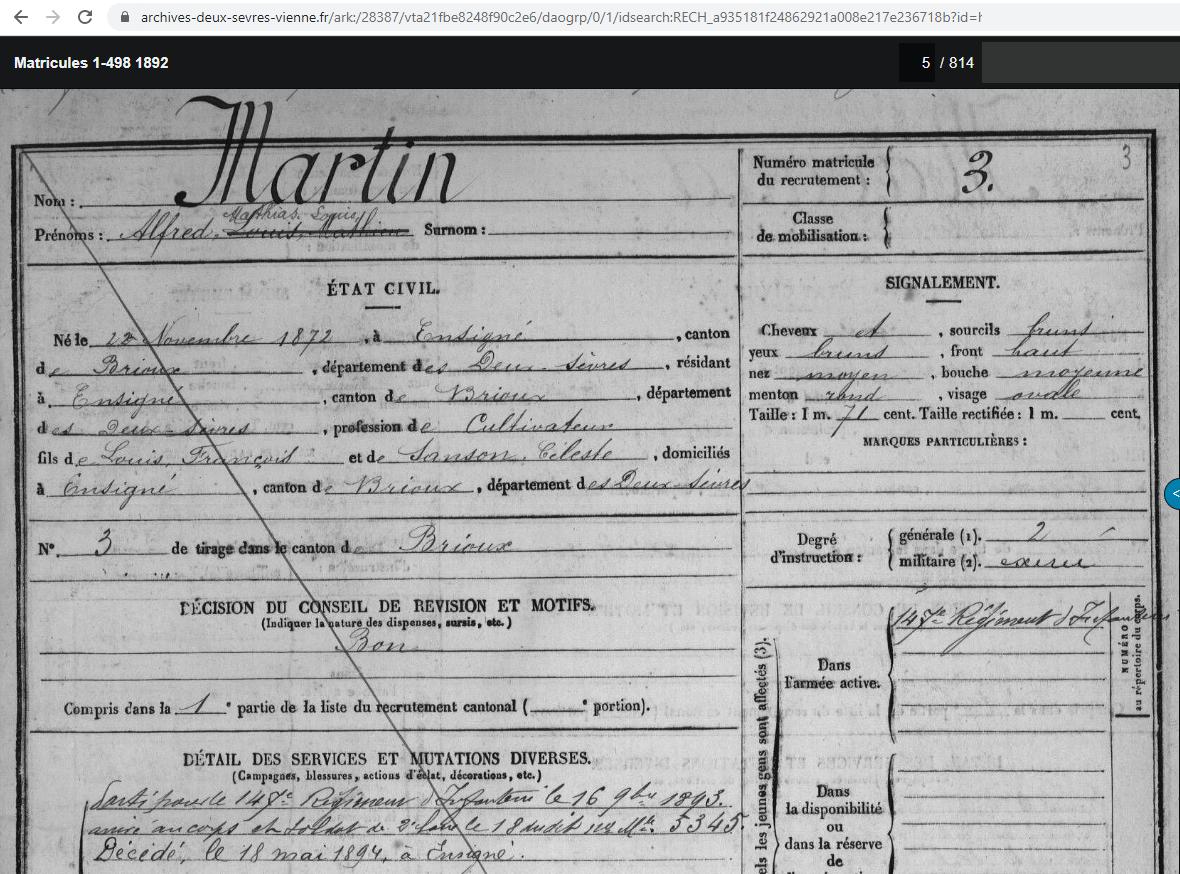 archives-deux-sevres-vienne.fr/ark:/28387/vta21fbe8248f90c2e6/daogrp/0/1/idsearch:RECH_a935181f24862921a008e217e236718b?id=h
Matricules 1-498 1892
5 / 814
Nom : Martin
Matthias Louis
Prénoms : Alfred, Louis, Mathieu Surnom :
Numéro matricule du recrutement : 3.
3
Classe de mobilisation :
ÉTAT CIVIL.
Né le 22 Novembre 1872, à Ensigné, canton
de Brioux, département des Deux-Sèvres, résidant
à Ensigné, canton de Brioux, département
des Deux-Sèvres, profession de Cultivateur
fils de Louis, François et de Sanson, Céleste, domiciliés
à Ensigné, canton de Brioux, département des Deux-Sèvres
N° 3 de tirage dans le canton de Brioux
DÉCISION DU CONSEIL DE REVISION ET MOTIFS.
(Indiquer la nature des dispenses, sursis, etc.)
Bon
Compris dans la 1e partie de la liste du recrutement cantonal ( e portion).
DÉTAIL DES SERVICES ET MUTATIONS DIVERSES.
(Campagnes, blessures, actions d'éclat, décorations, etc.)
Parti pour le 147e Régiment d'Infanterie le 16 9bre 1893.
arrivé au corps et soldat de 2e classe le 18 dudit Mle 5345.
Décédé, le 18 mai 1894, à Ensigné.
SIGNALEMENT.
Cheveux et, sourcils bruns
yeux bruns, front haut
nez moyen, bouche moyenne
menton rond, visage ovale
Taille : 1 m. 71 cent. Taille rectifiée : 1 m. cent.
MARQUES PARTICULIÈRES :
Degré d'instruction :
générale (1). 2
militaire (2). exercé
147e Régiment d'Infanterie
Dans
l'armée active.
Dans
la disponibilité
ou
dans la réserve
de
els les jeunes gens sont affectés (3).
NUMÉRO
au répertoire du corps.